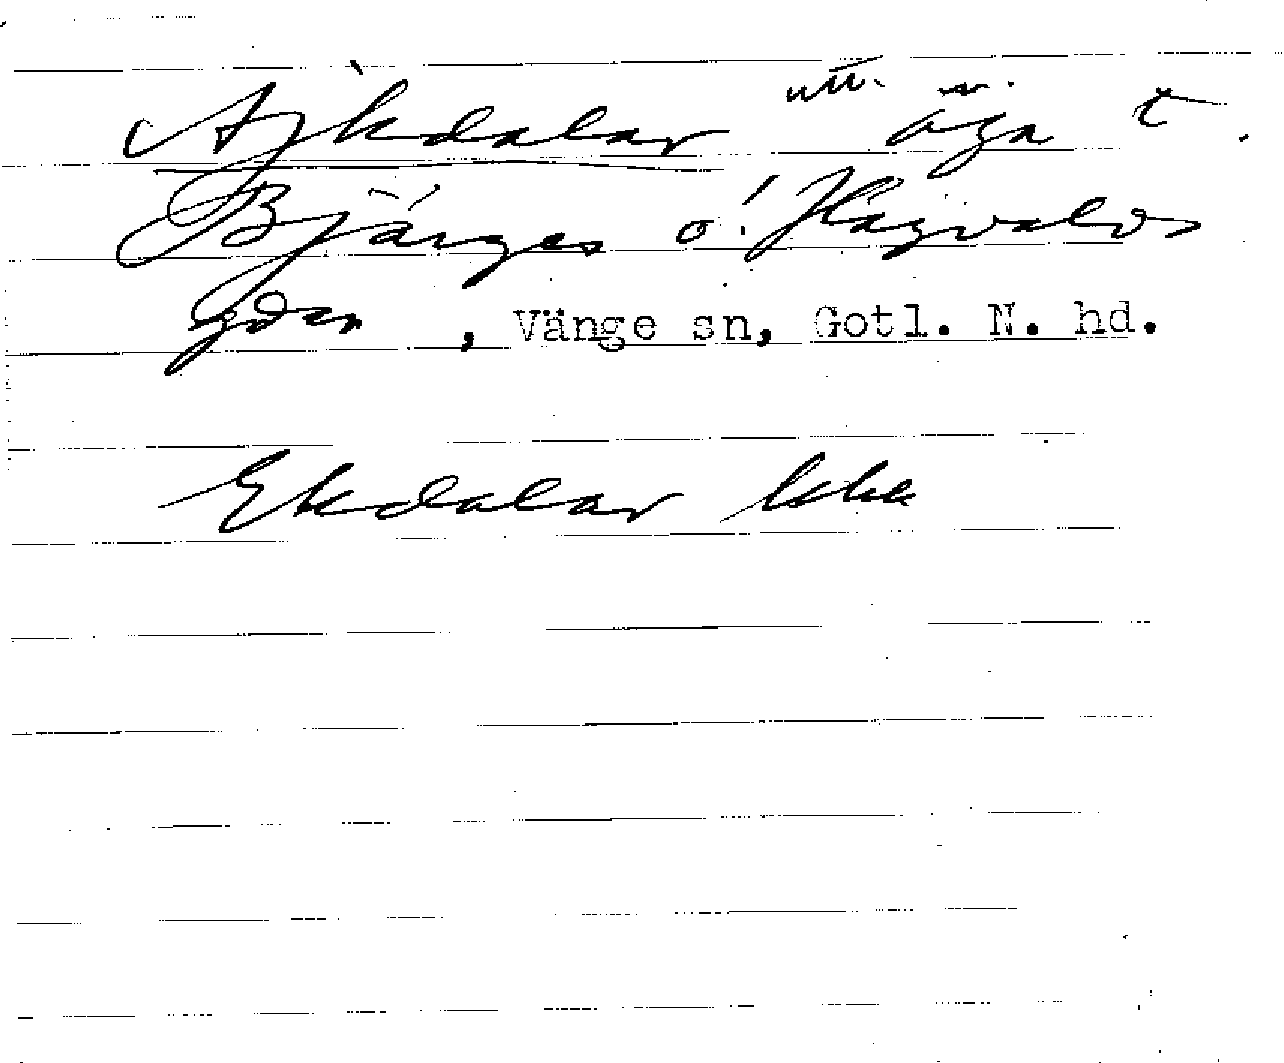 Ajkdalar utu. äga t.
Bjärges o. Hägvalds
gdar, Vänge sn, Gotl. N. hd.
Ekdalar